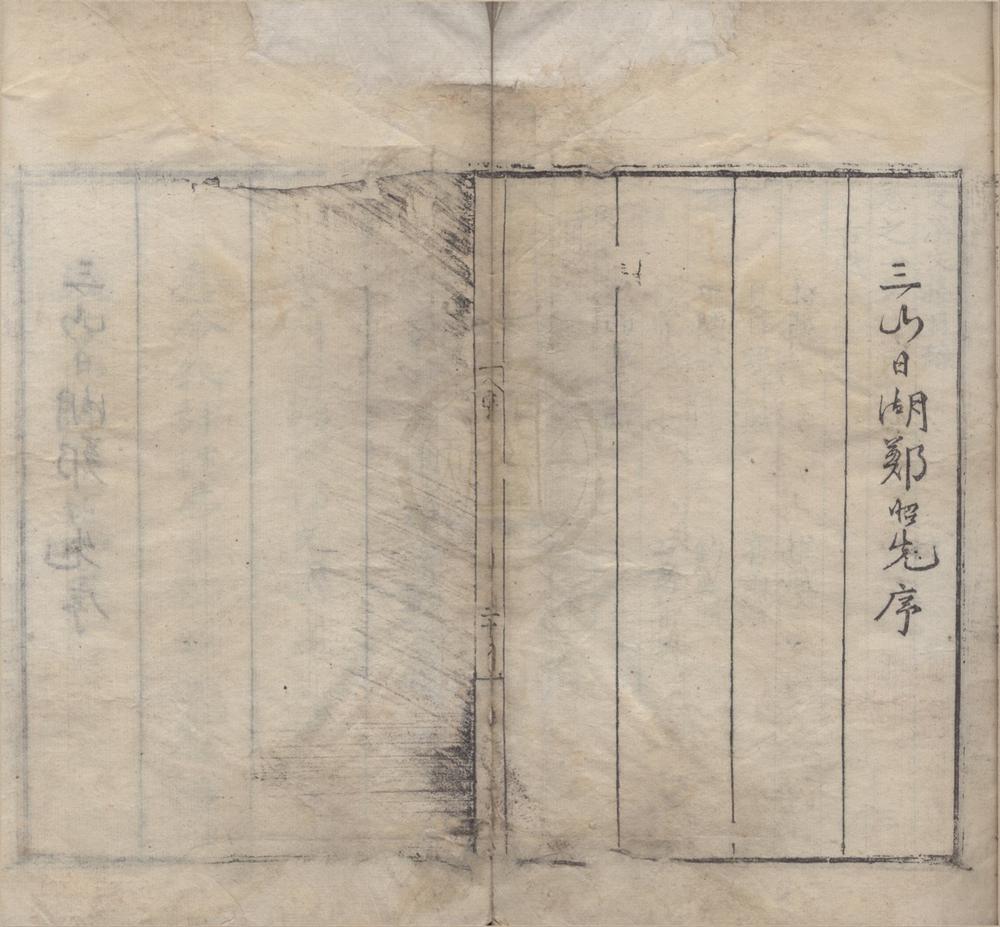 三山日湖鄭昭先序